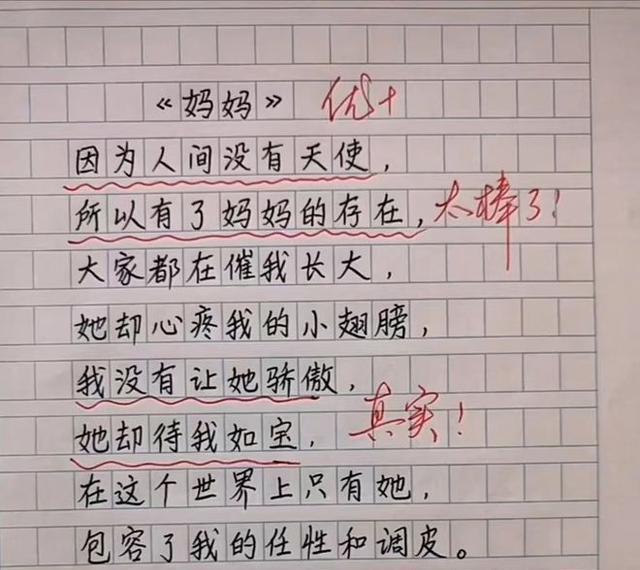 《妈妈》 优+
因为人间没有天使，
所以有了妈妈的存在，太棒了！
大家都在催我长大，
她却心疼我的小翅膀，
我没有让她骄傲，
她却待我如宝，真实！
在这个世界上只有她，
包容了我的任性和调皮。